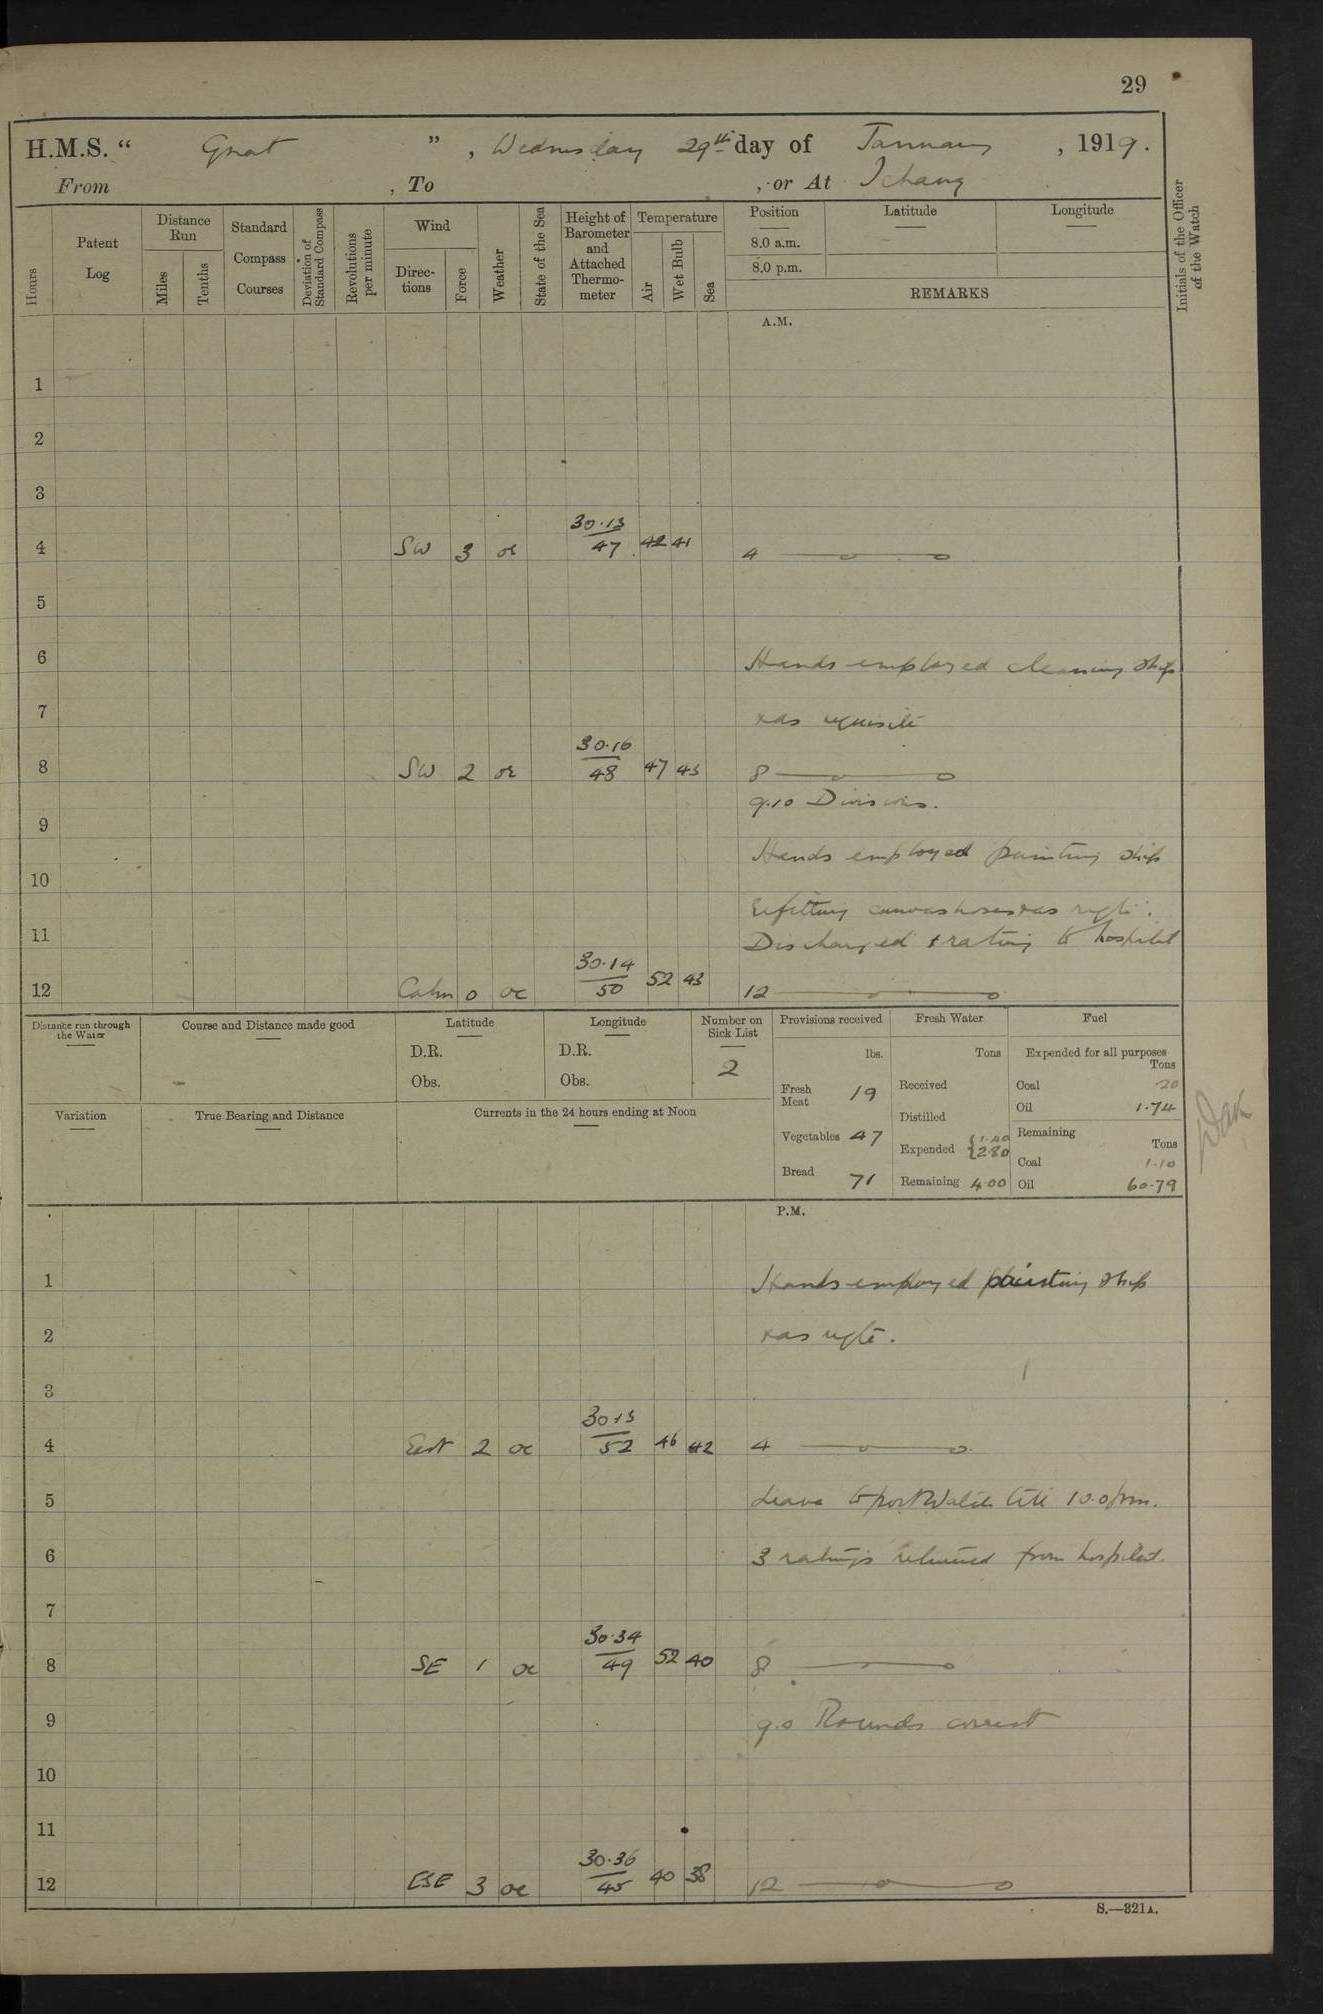 29
H.M.S. “ Gnat ” , Wednesday 29th day of January , 1919.
From , To , or At Ichang
Hours
Patent Log
Distance Run
Miles
Tenths
Standard Compass Courses
Deviation of Standard Compass
Revolutions per minute
Wind
Directions
Force
Weather
State of the Sea
Height of Barometer and Attached Thermometer
Temperature
Air
Wet Bulb
Sea
Position Latitude Longitude
8.0 a.m.
8.0 p.m.
REMARKS
Initials of the Officer of the Watch
A.M.
1
2
3
30.13
4 SW 3 oc 47 42 41 4
5
6 Hands employed cleaning ship
7 & as requisite
30.16
8 SW 2 oc 48 47 43 8
9.10 Divisions.
9
Hands employed painting ship
10
Refitting canvas hoses & as rqte.
11 Discharged rating to hospital
30.14
12 Calm 0 oc 50 52 43 12
Distance run through the Water
Course and Distance made good
Latitude
D.R.
Obs.
Longitude
D.R.
Obs.
Number on Sick List
2
Provisions received
lbs.
Fresh Meat 19
Vegetables 47
Bread 71
Fresh Water
Tons
Received
Distilled
Expended 1.40
2.80
Remaining 4.00
Fuel
Expended for all purposes
Tons
Coal .20
Oil 1.74
Remaining
Tons
Coal 1.10
Oil 60.79
Variation
True Bearing and Distance
Currents in the 24 hours ending at Noon
P.M.
1 Hands employed painting ship
2 & as rqte.
3
30.13
4 East 2 oc 52 46 42 4
5 Leave to port Watch till 10.0 pm.
6 3 ratings returned from hospital.
7
30.34
8 SE 1 oc 49 52 40 8
9 9.0 Rounds correct
10
11
30.36
12 ESE 3 oc 45 40 38 12
S.—321A.